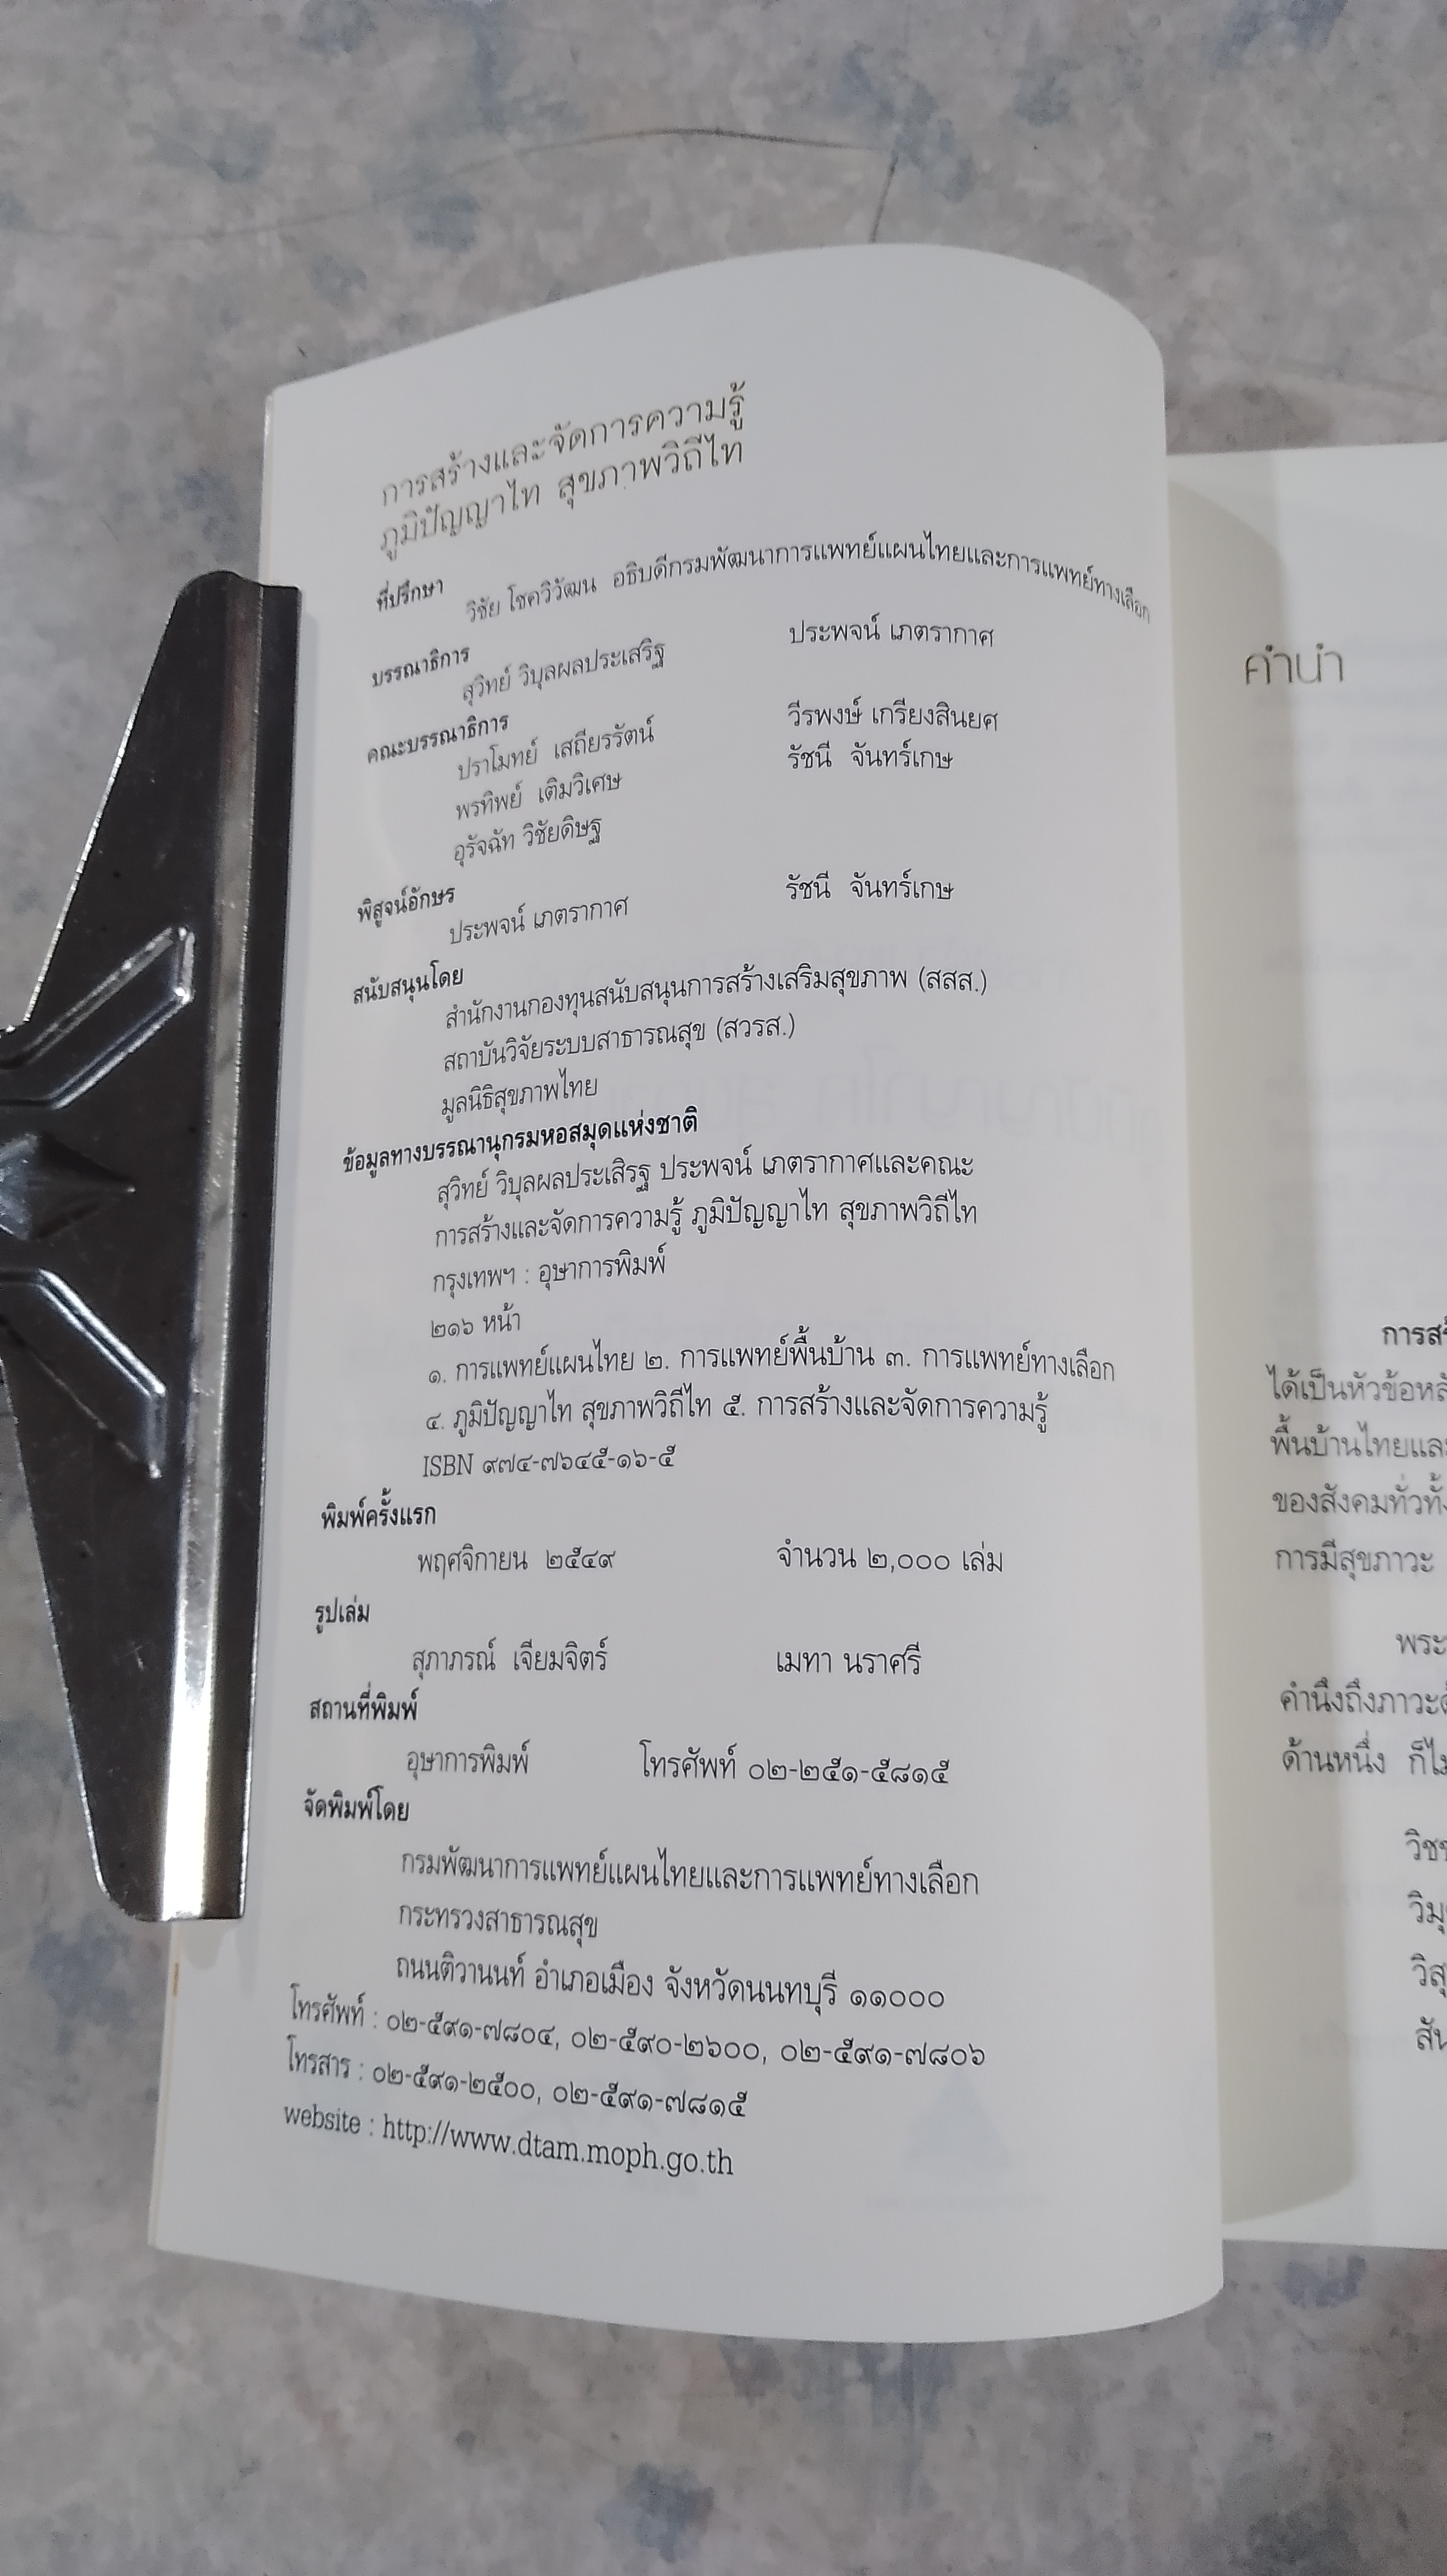 การสร้างและจัดการความรู้
ภูมิปัญญาไท สุขภาพวิถีไท
ที่ปรึกษา
วิชัย โชควิวัฒน อธิบดีกรมพัฒนาการแพทย์แผนไทยและการแพทย์ทางเลือก
บรรณาธิการ
สุวิทย์ วิบุลผลประเสริฐ ประพจน์ เภตรากาศ
คณะบรรณาธิการ
ปราโมทย์ เสถียรรัตน์ วีรพงษ์ เกรียงสินยศ
พรทิพย์ เติมวิเศษ รัชนี จันทร์เกษ
อุรัจฉัท วิชัยดิษฐ
พิสูจน์อักษร
ประพจน์ เภตรากาศ รัชนี จันทร์เกษ
สนับสนุนโดย
สำนักงานกองทุนสนับสนุนการสร้างเสริมสุขภาพ (สสส.)
สถาบันวิจัยระบบสาธารณสุข (สวรส.)
มูลนิธิสุขภาพไทย
ข้อมูลทางบรรณานุกรมหอสมุดแห่งชาติ
สุวิทย์ วิบุลผลประเสิรฐ ประพจน์ เภตรากาศและคณะ
การสร้างและจัดการความรู้ ภูมิปัญญาไท สุขภาพวิถีไท
กรุงเทพฯ : อุษาการพิมพ์
๒๑๖ หน้า
๑. การแพทย์แผนไทย ๒. การแพทย์พื้นบ้าน ๓. การแพทย์ทางเลือก
๔. ภูมิปัญญาไท สุขภาพวิถีไท ๕. การสร้างและจัดการความรู้
ISBN ๙๗๔-๗๖๔๕-๑๖-๕
พิมพ์ครั้งแรก
พฤศจิกายน ๒๕๔๙ จำนวน ๒,๐๐๐ เล่ม
รูปเล่ม
สุภาภรณ์ เจียมจิตร์ เมทา นราศรี
สถานที่พิมพ์
อุษาการพิมพ์ โทรศัพท์ ๐๒-๒๕๑-๕๘๑๕
จัดพิมพ์โดย
กรมพัฒนาการแพทย์แผนไทยและการแพทย์ทางเลือก
กระทรวงสาธารณสุข
ถนนติวานนท์ อำเภอเมือง จังหวัดนนทบุรี ๑๑๐๐๐
โทรศัพท์ : ๐๒-๕๙๑-๗๘๐๔, ๐๒-๕๙๐-๒๖๐๐, ๐๒-๕๙๑-๗๘๐๖
โทรสาร : ๐๒-๕๙๑-๒๕๐๐, ๐๒-๕๙๑-๗๘๑๕
website : http://www.dtam.moph.go.th
คำนำ
ได้เป็นหัวข้อ
พื้นบ้านไทย
ของสังคม
การมีสุขภาวะ
พระ
คำนึงถึงภาวะ
ด้านหนึ่ง